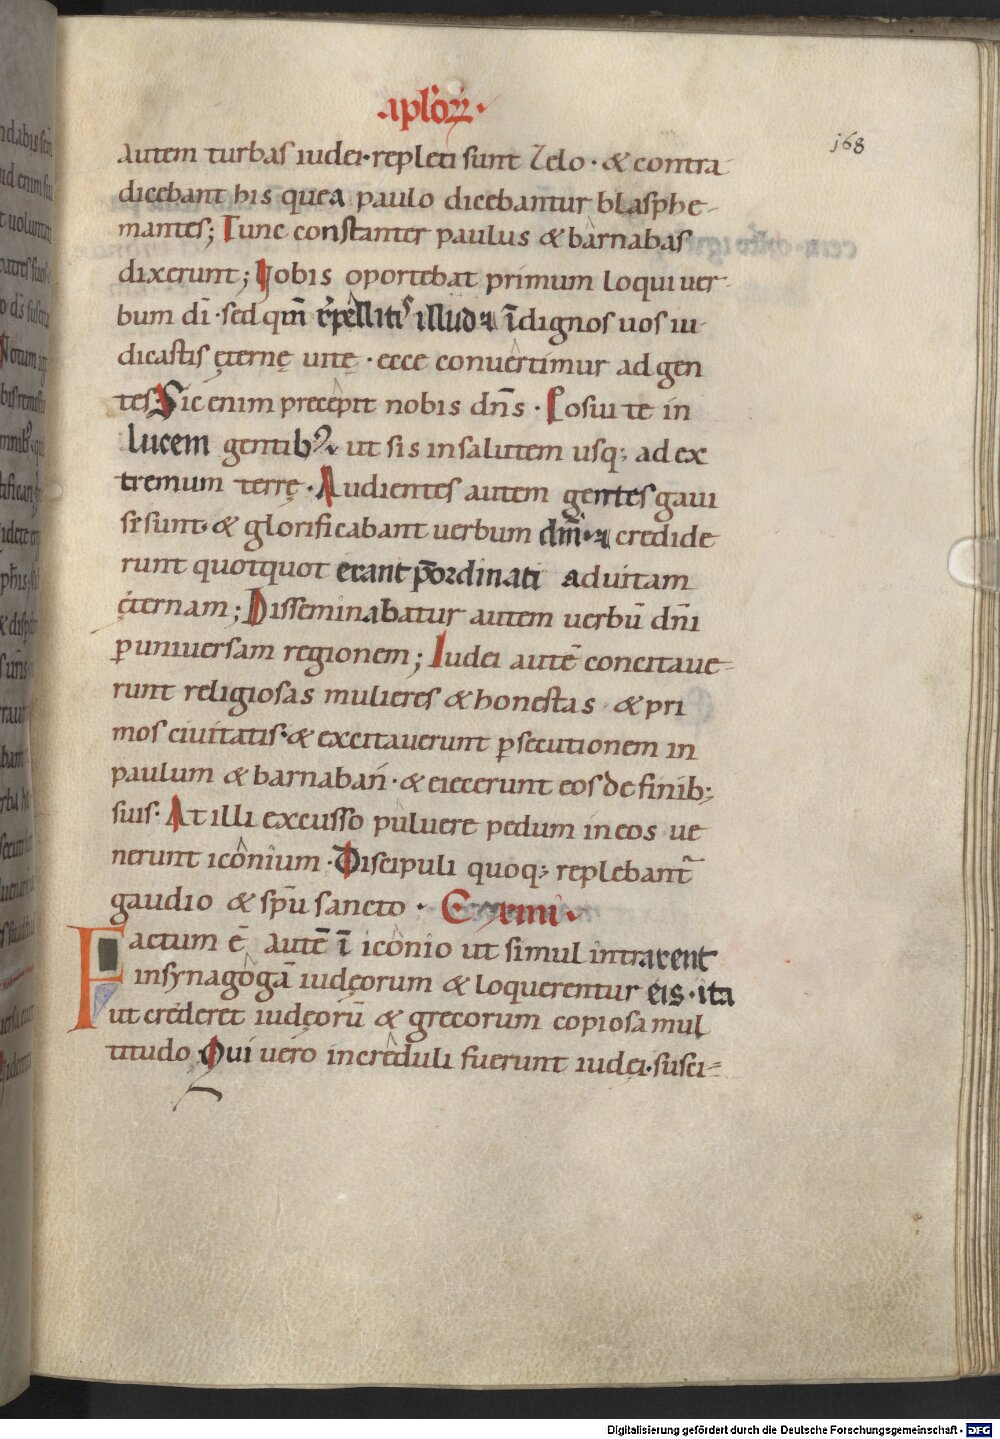 .aplōꝝ.
168
autem turbas iudei·repleti sunt zelo·& contra
dicebant his quea paulo dicebantur blasphe-
mantes; Tunc constanter paulus & barnabas
dixerunt; Vobis oportebat primum loqui uer-
bum dī·sed qm̄ repellitis illud & īdignos uos iu-
dicastis ęternę uitę·ecce conuertimur ad gen
tes. Sic enim precepit nobis dn̄s. Posui te in
lucem gentib⁹ ut sis in salutem usq; ad ex
tremum terrę. Audientes autem gentes gaui
si sunt· & glorificabant uerbum dn̄i· & credide
runt quotquot erant p̄ordinati ad uitam
ęternam; Disseminabatur autem uerbū dn̄i
ꝑ uniuersam regionem; Iudei autē concitaue-
runt religiosas mulieres & honestas & pri
mos ciuitatis·& excitauerunt ꝑsecutionem in
paulum & barnaban·& eiecerunt eos de finib;
suis. At illi excusso puluere pedum in eos ue
nerunt iconium. Discipuli quoq; replebant᷑
gaudio & sp̄u sancto.
Factum ē autē ī iconio ut simul intrarent
in synagogā iudęorum & loquerentur eis·ita
ut crederet iudęorū & grecorum copiosa mul
titudo. Qui uero increduli fuerunt iudęi·susci-
nd abis
Digitalisierung gefördert durch die Deutsche Forschungsgemeinschaft - DFG